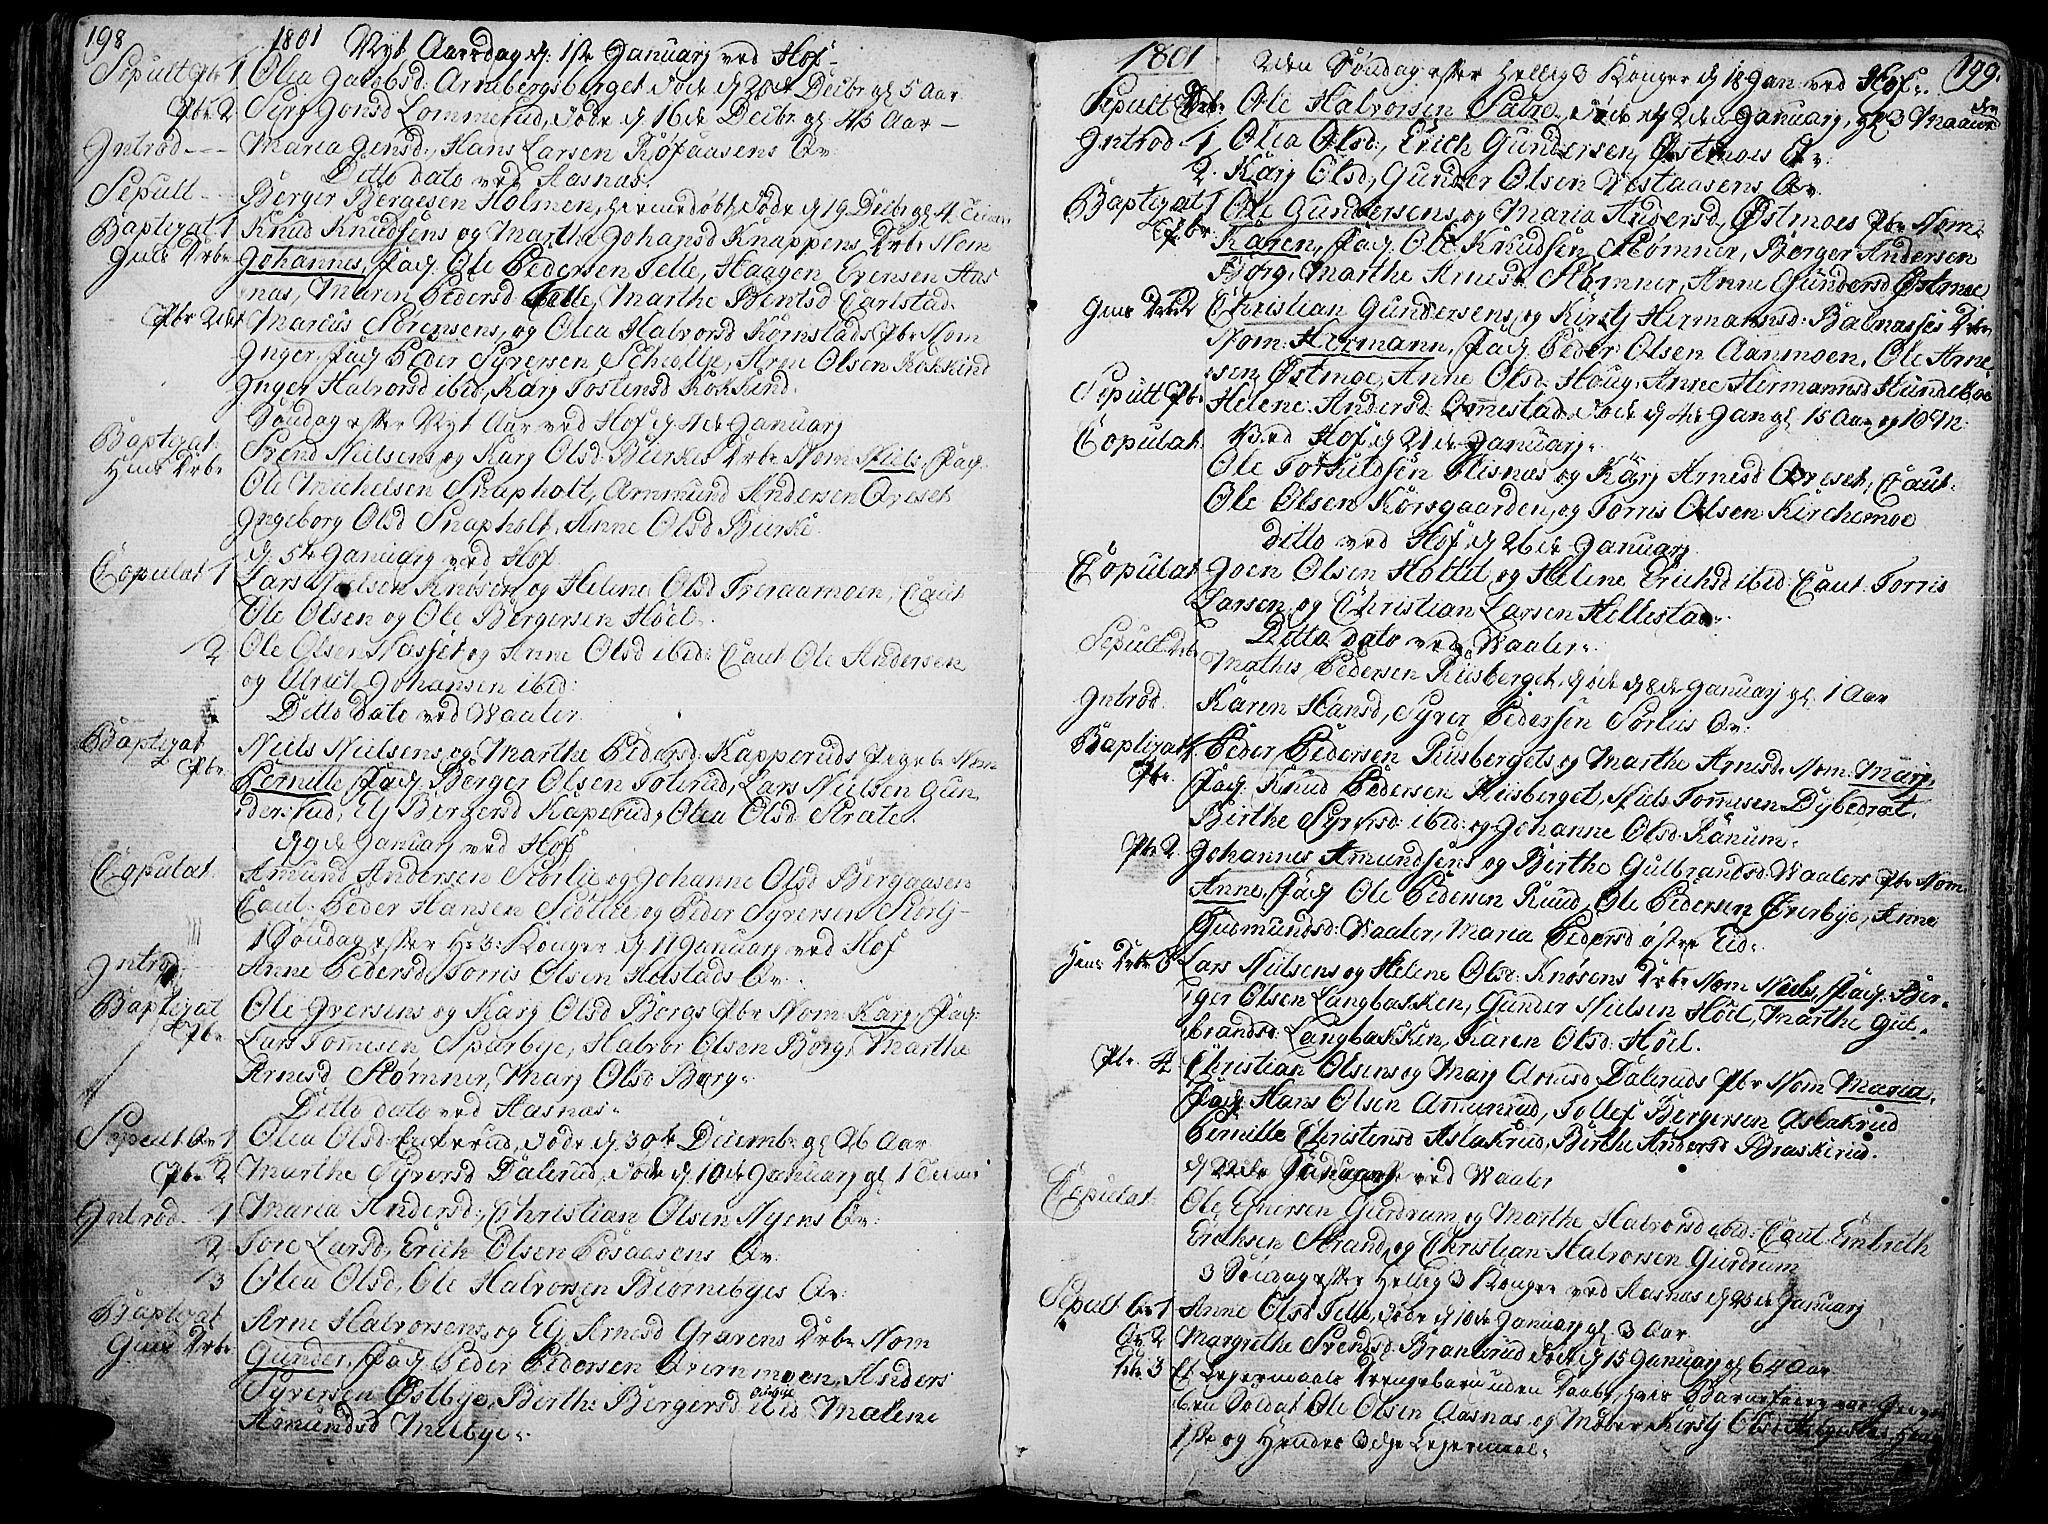 198
1801 Nyt Aarsdag d: 1ste Januarj ved Hof
Sepult Pbr 1 Olea Jacobsd: Arnebergsberget døde d 20de Decbr gl 5 Aar
Pbr 2 Siri Jonsd Lommerud, døde d 16de Decbr gl 45 Aar
Introd Maria Jensd, Hans Larsen Køfaasens Qv:
Ditto dato ved Aasnæs.
Sepult Berger Bergersen Holmen, hiemedøbt døde d 19 Decbr gl 4
Baptizat 1 Knud Knudsens og Marthe Johansd Knappens Drbn Nom
Johannes, Fad. Ole Pedersen Telle, Haagen Evensen Aas
næs, Maren Pedersd Telle, Marthe Berntsd Carlstad.
Pbr 2 Marcus Sørensens, og Olea Halvorsd Kornstads Pbr Nom
Inger, Fad Peder Syversen Scholle, Aren Olsen Kokkind
Inger Halvorsd ibid, Kari Tostensd Kokkind.
Søndag efter Nyt Aar ved Hof d 4de Januarj
Baptizat Svend Nielsens og Karj Olsd Bierkes Drbn Nom Niels, Fad:
Ole Michelsen Snapholt, Ammund Andersen Qveset
Ingeborg Olsd Snapholt, Anne Olsd Bierke.
d 5te Januarj ved Hof
Copulat 1 Lars Nielsen Knøsen og Helene Olsd Treraamoen, Caut
Ole Olsen og Ole Bergersen Hoel.
2 Ole Olsen Hasset og Anne Olsd ibid: Caut Ole Andersen
og Johansen ibid:
Ditto dato ved Vaaler
Baptizat Niels Nielsens og Marthe Pedersd Kapperuds Pigebr Nom
Pbr Pernille, Fad, Berger Olsen Toterud, Lars Nielsen Gun
derserud, Eli Bergersd Kaperud, Olea Olsd Strate
d 9de Januarj ved Hof
Copulat Amund Andersen Storlie og Johanne Olsd Bergaasen
Caut: Peder Hansen Sætlie og Peder Syversen Storlj
1 Søndag efter H: 3: Konger d 11 Januarj ved Hof
Introd Anne Pedersd, Torris Olsen Hastads Qv:
Baptizat Ole Iversens og Karj Olsd Borgs Pbr Nom: Karj, Fad:
Pbr Lars Tomesen, Sparbye, Halvor Olsen Borg, Marthe
Arnesd Stømner, Marj Olsd Borg.
Ditto dato ved Aasnæs
Sepult Qv 1 Olea Olsd Enkerud, døde d 30te Decembr gl 26 Aar
Pbr 2 Marthe Syversd Dalerud, døde d 10de Januarj gl 1
Introd 1 Maria Andersd, Christian Olsen Nyens Qv:
2 Tore Larsd, Erich Olsen Posaasens Qv
3 Olea Olsd, Ole Halvorsen Biørnebyes Qv:
Baptizat Arne Halvorsens, og Eli Arnesd Gravens Drbn Nom
Gunder, Fad, Peder Pedersen Overmoen, Anders
Syversen Østbye, Berthe Bergersd ibid, Malene
Asmundsd Melbye.
199
1801 2den Søndag efter Hellig 3 Konger d 18 Jan: ved Hof
Sepult Drbn Ole Halvorsen Sætre, døde d 2den Januarj, gl 3 Maaned
Introd 1, Olea Olsd, Erich Gundersen, Østmoes Qv:
2. Karj Olsd, Gunder Olsen Vestaasens Qv.
Baptizat 1 Ole Gundersens, og Maria Andersd, Østmoes Pbr Nom:
Pbr. Karen, Fad, Ole Knudsen Stømner, Berger Andersen
Borg, Marthe Arnesd Stømner, Anne Gundersd Østmoe
2 Christian Gundersens og Kirstj Hermansd: Balnasses Drbn
Nom: Hermann, Fad, Peder Olsen Aanmoen, Ole Arne
sen, Østmoe, Anne Olsd Houg, Anne Hermansd Hundebøe
Sepult Pbr Helene Andersd: Ømestad, døde d 4de Jan gl 15 Aar og 10 M:
Copulat Ved Hof d 21de Januarj
Ole Torkildsen Aisnæs og Karj Arnesd Qveset, Caut:
Ole Olsen Korsgaarden, og Torris Olsen Kirchemoe
Ditto ved Hof d 26de Januarj
Copulat Joen Olsen Hollet og Helene Erichsd ibid: Caut Torris
Larsen og Christian Larsen Hellestad
Ditto dato ved Vaaler.
Sepult Mathis Pedersen Riisberget, døde d 8de Januarj gl 1 Aar
Introd. Karen Hansd, Syver Pedersen Sorlies Qv:
Baptizat Peder Pedersen Riisbergets og Marthe Arnesd: Nom: Marj,
Pbr. Fad, Knud Pedersen Riisberget, Niels Tommesen Dybedraat,
Birthe Syversd ibid: og Johanne Olsd Ranum.
Pbr 2 Johannes Amundsens og Birthe Gulbrandsd: Vaalers Pbr Nom:
Anne, Fad, Ole Pedersen Ruud, Ole Pedersen Øverbye, Anne
Gudmundsd: Vaaler, Maria Pedersd østre Eid.
3 Lars Nielsens og Helene Olsd: Knøsens Drbn Nom Niels, Fad: Ber
ger Olsen Langbakken, Gunder Nielsen Hoel, Marthe Gul
brandsd Langbakken, Karen Olsd: Hoel.
Pbr. 4 Christian Olsens og Marj Arnesd Dalerads Pbr Nom Maria,
Fad, Hans Olsen Amunrud, Tollef Bergersen Aslakrud
Pernille Christensd Aslakrud, Birthe Andersd Braskerud.
d 22de Januarj ved Vaaler
Copulat Ole Enersen Gurdrum og Marthe Halvorsd ibid: Caut: Embreth
Erichsen Strand, og Christian Halvorsen Gurdrum
3 Søndag efter Hellig 3 Konger ved Aasnæs d 25de Januarj
Sepult Qv 1 Anne Olsd Telle, døde d 10de Januarj gl 3 Aar.
Qv 2 Margrethe Svendsd: Branerud døde d 15 Januarj gl 64 Aar
3 Et Lejermaals Drengebarn uden Daab, hvis Barnefader
en Soldat Ole Olsen Aasnæs, og Moder Kirstj Olsd
1ste og Hendes 3die Lejermaal